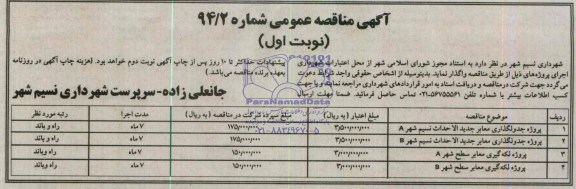 آگهی مناقصه عمومی شماره ۹۴/۲
(نوبت اول)
شهرداری نسیم شهر در نظر دارد به استناد مجوز شورای اسلامی شهر از محل اعتبارات شهرداری
اجرای پروژه‌های ذیل از طریق مناقصه واگذار نماید. بدینوسیله از اشخاص حقوقی واجد شرایط دعوت
می‌گردد جهت شرکت در مناقصه و دریافت اسناد به امور قراردادهای شهرداری مراجعه نمایند و یا جهت
کسب اطلاعات بیشتر با شماره تلفن ۵۶۷۵۵۵۶۱-۰۲۱ تماس حاصل فرمائید. ضمنا مهلت ارسال
پیشنهادات حداکثر تا ۱۰ روز پس از چاپ آگهی نوبت دوم خواهد بود. (هزینه چاپ آگهی در روزنامه
بعهده برنده مناقصه می‌باشد.)
جانعلی زاده-سرپرست شهرداری نسیم شهر
ParsNamadData
۰۲۱-۸۸۳۴۹۶۷۰-۵
ردیف موضوع مناقصه مبلغ اعتبار (به ریال) مبلغ سپرده شرکت در مناقصه (به ریال) مدت اجرا رتبه مورد نظر
۱ پروژه جدولگذاری معابر جدید الاحداث نسیم شهر A ۳٫۵۰۰٫۰۰۰٫۰۰۰ ۱۷۵٫۰۰۰٫۰۰۰ ۷ ماه راه و باند
۲ پروژه جدولگذاری معابر جدید الاحداث نسیم شهر B ۳٫۵۰۰٫۰۰۰٫۰۰۰ ۱۷۵٫۰۰۰٫۰۰۰ ۷ ماه راه و باند
۳ پروژه لکه گیری معابر سطح شهر A ۳٫۰۰۰٫۰۰۰٫۰۰۰ ۱۵۰٫۰۰۰٫۰۰۰ ۷ ماه راه و باند
۴ پروژه لکه گیری معابر سطح شهر B ۳٫۰۰۰٫۰۰۰٫۰۰۰ ۱۵۰٫۰۰۰٫۰۰۰ ۷ ماه راه و باند